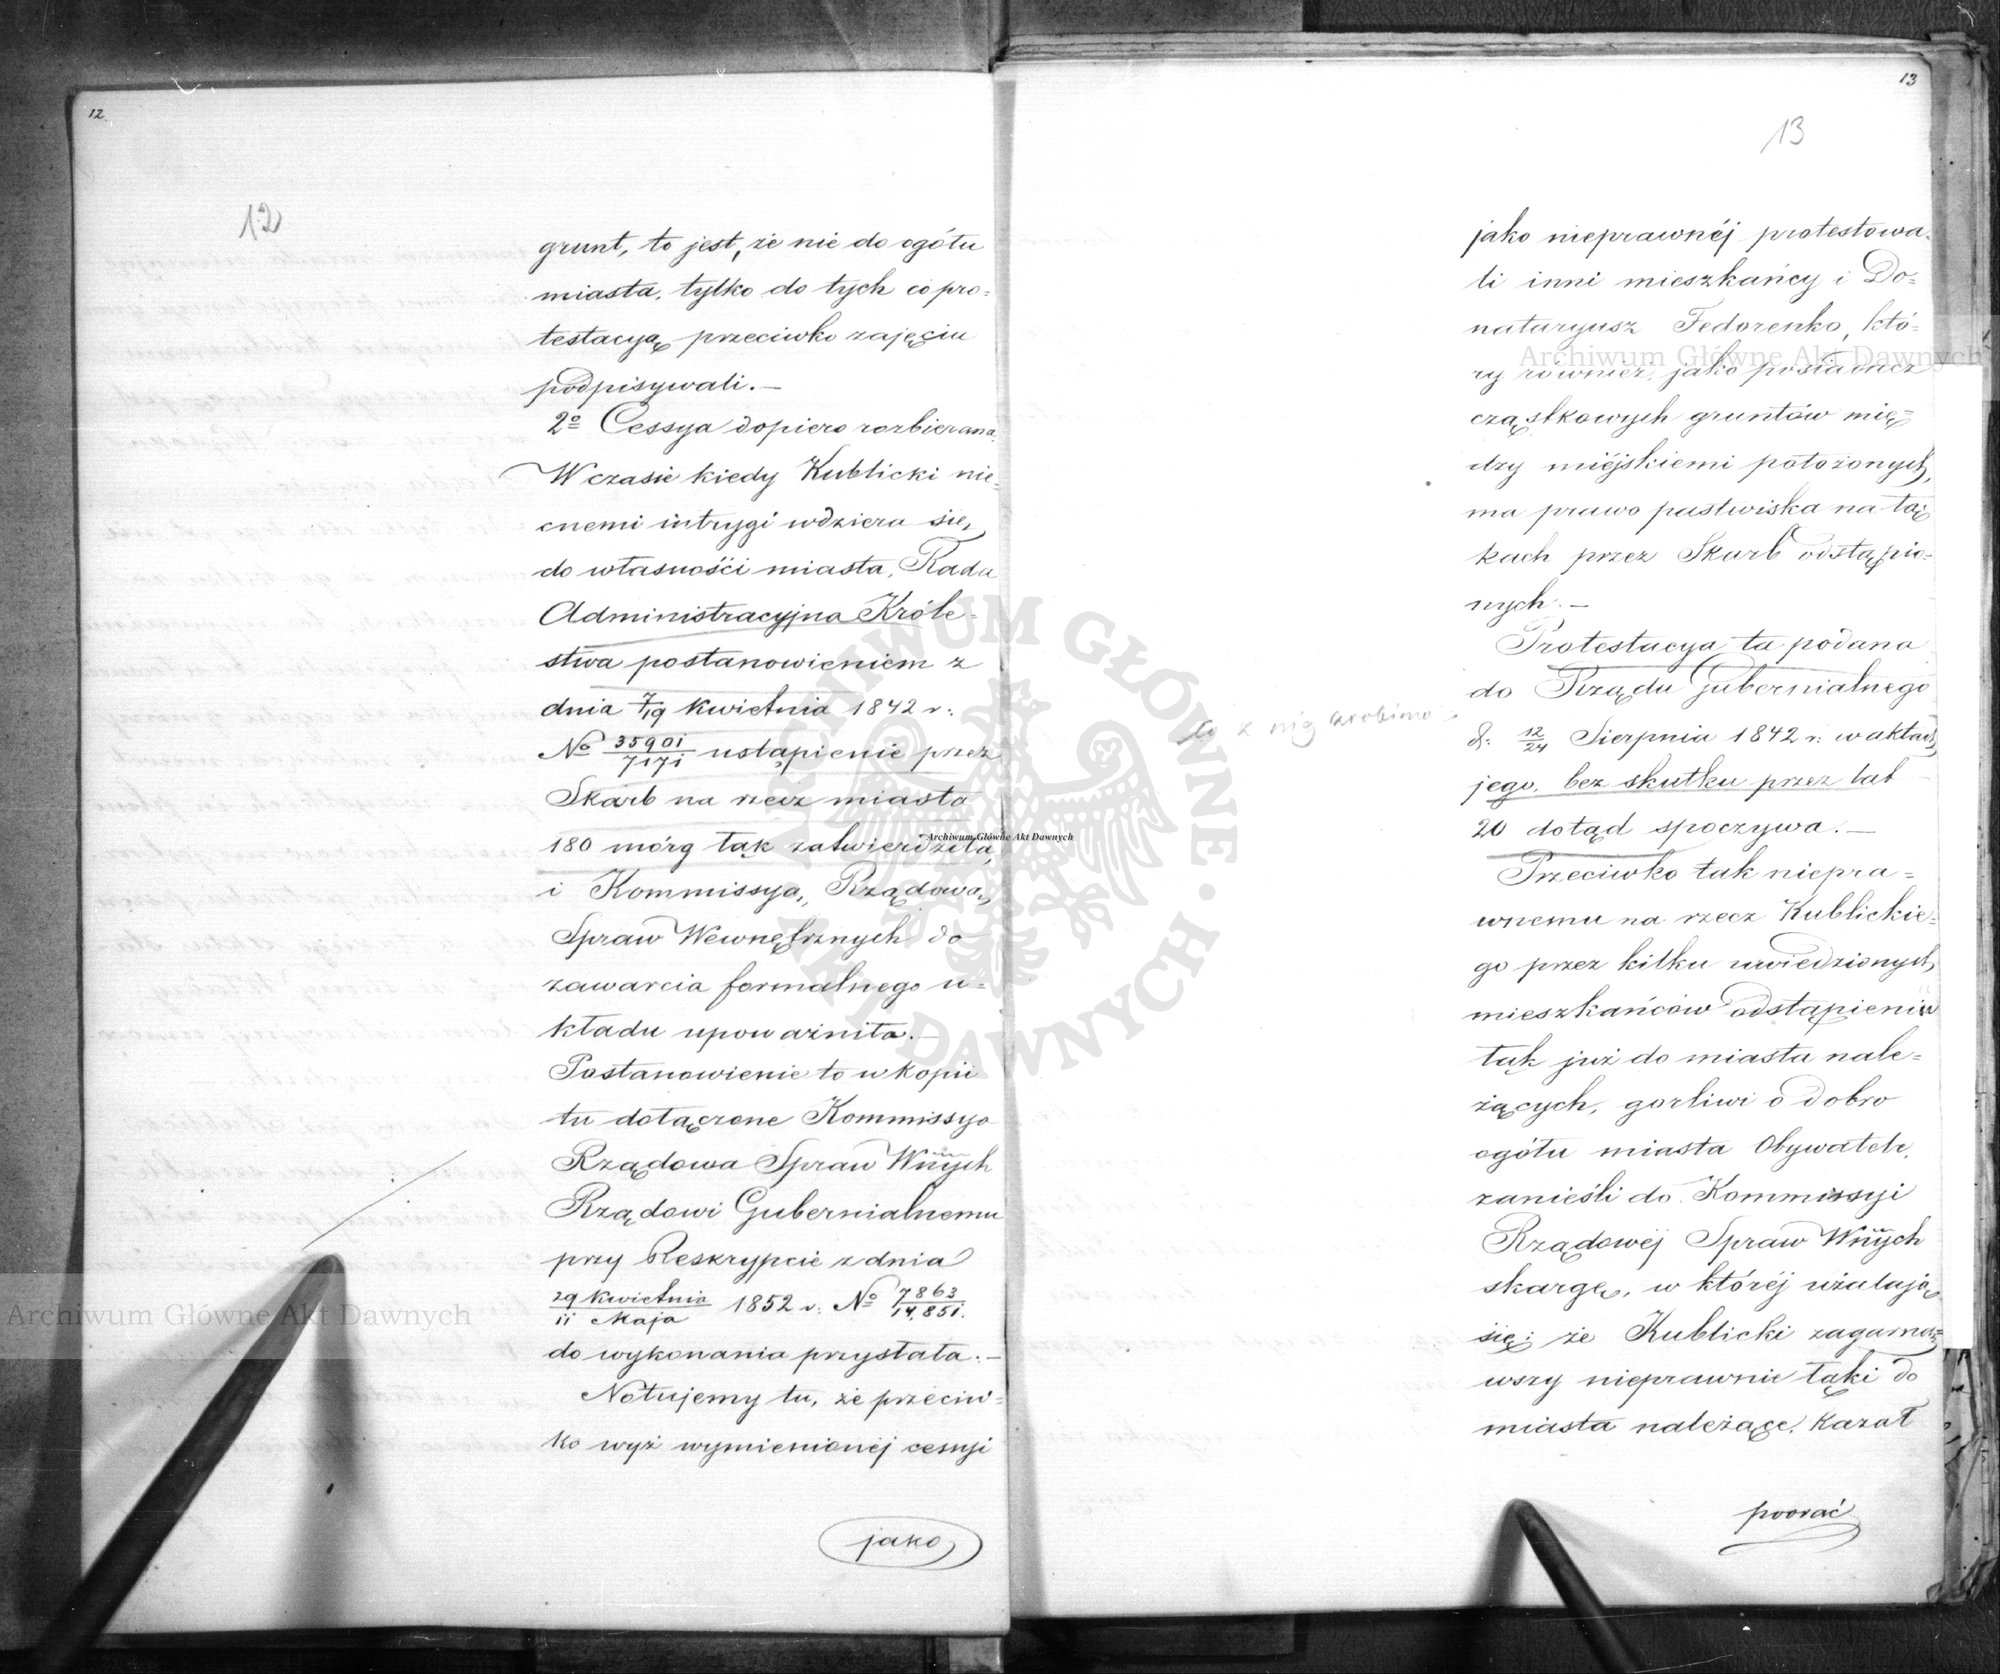 12.
12
grunt, to jest, że nie do ogółu
miasta, tylko do tych co pro=
testacyą przeciwko zajęciu
podpisywali.—
2o Cessya dopiero rozbierana.
W czasie kiedy Kublicki nie=
cnemi intrygi wdziera się
do własności miasta, Rada
Administracyjna Króle=
stwa postanowieniem z
dnia 7/19 Kwietnia 1842 r:
No 35901/7171 ustąpienie przez
Skarb na rzecz miasta
180 mórg łąk zatwierdziła,
i Kommissyą Rządową
Spraw Wewnętrznych do
zawarcia formalnego u=
kładu upoważniła.—
Postanowienie to w kopii
tu dołączone Kommissya
Rządowa Spraw Wnnych
Rządowi Gubernialnemu
przy Reskrypcie z dnia
29 Kwietnia/11 Maja 1852 r: No 7863/14,851.
do wykonania przysłała.—
Notujemy tu, że przeciw=
ko wyż wymienionéj cessyi
jako
13
13
jako nieprawnéj protestowa=
li inni mieszkańcy i Do=
nataryusz Fedorenko, któ=
ry również, jako posiadacz
cząstkowych gruntów mię=
dzy miéjskiemi położonych,
ma prawo pastwiska na łą=
kach przez Skarb odstąpio=
nych.—
Protestacya ta podana
do Rządu Gubernialnego
d: 12/24 Sierpnia 1842 r: w aktach
jego, bez skutku przez lat
20 dotąd spoczywa.—
Przeciwko tak niepra=
wnemu na rzecz Kublickie=
go przez kilku uwiedzionych
mieszkańców odstąpieniu
łąk już do miasta nale=
żących, gorliwi o dobro
ogółu miasta Obywatele,
zanieśli do Kommissyi
Rządowéj Spraw Wnnych
skargę, w któréj użalają
się: że Kublicki zagarną=
wszy nieprawnie łąki do
miasta należące, kazał
poorać
co z nią zrobiono
Archiwum Główne Akt Dawnych
Archiwum Główne Akt Dawnych
Archiwum Główne Akt Dawnych
ARCHIWUM GŁÓWNE AKT DAWNYCH